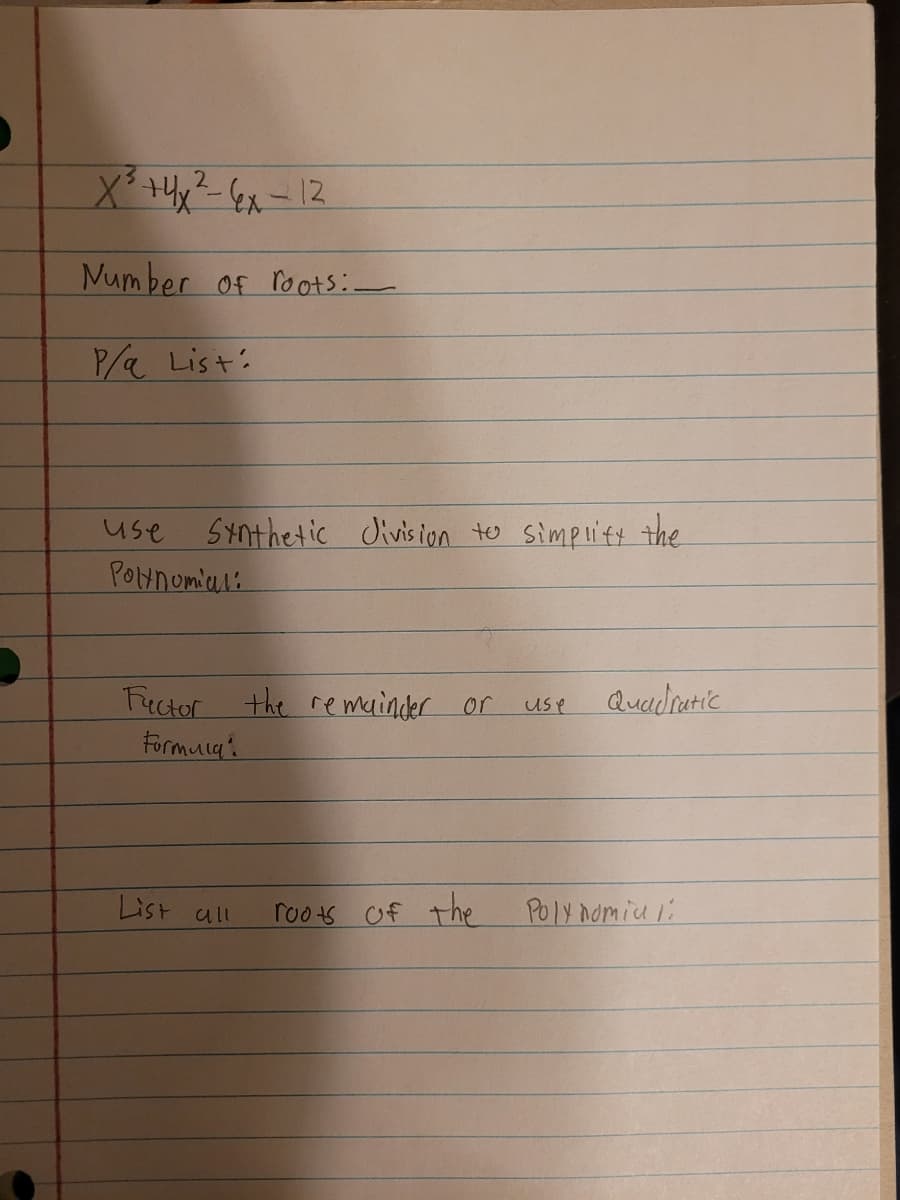 x³+4x²-6x-12
Number of roots:__
P/q List:
use Synthetic division to simplify the
Polynomial:
Factor the remainder or use Quadratic
Formula:
List all roots of the Polynomial: